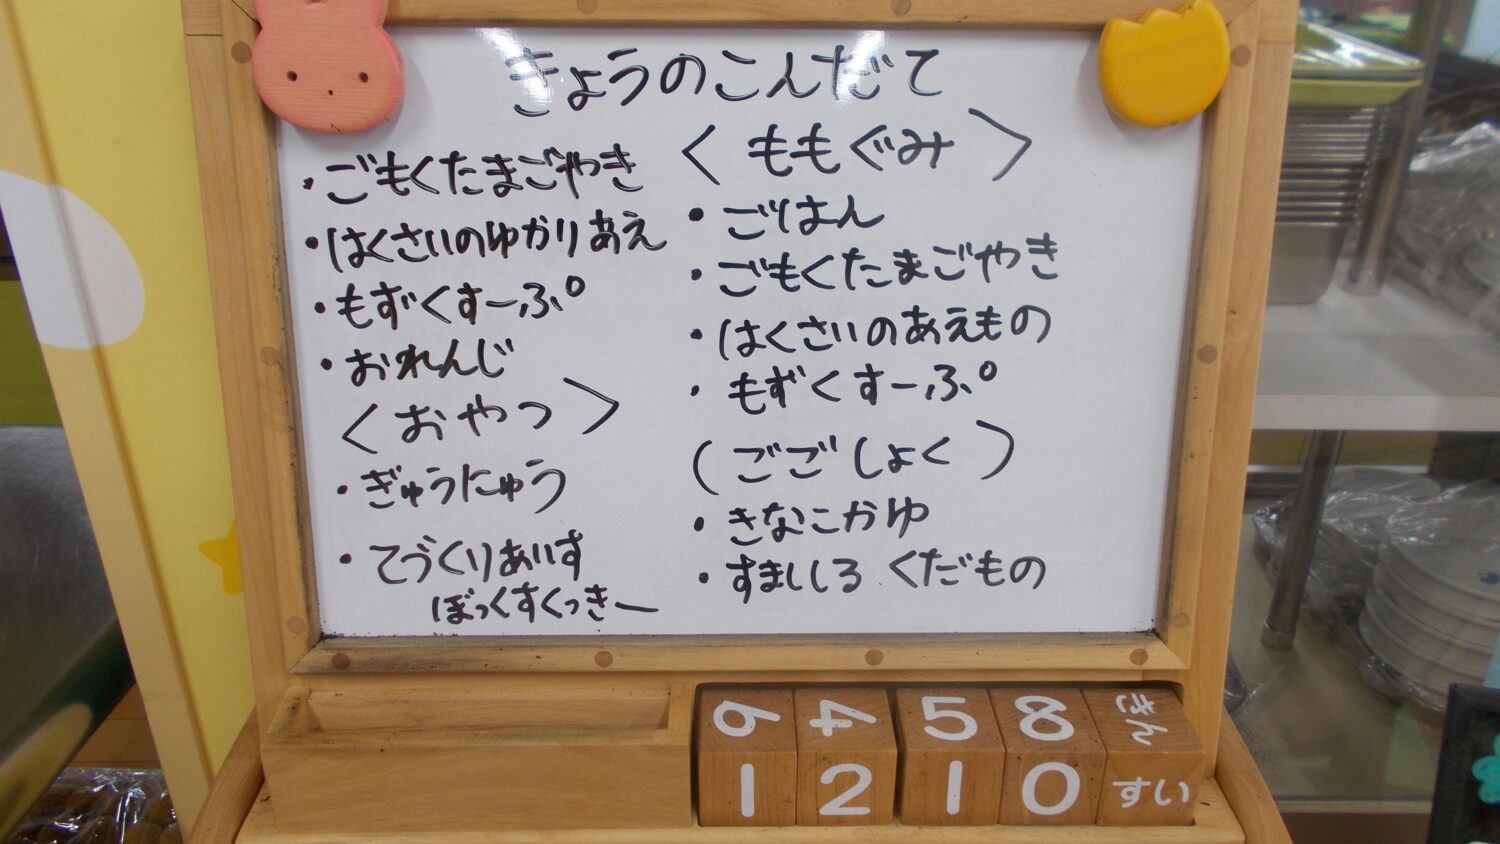 きょうのこんだて
・ごもくたまごやき
・はくさいのゆかりあえ
・もずくすーぷ
・おれんじ
〈おやつ〉
・ぎゅうにゅう
・てづくりあいす
ぼっくすくっきー
〈ももぐみ〉
・ごはん
・ごもくたまごやき
・はくさいのあえもの
・もずくすーぷ
(ごごしょく)
・きなこかゆ
・すましじる くだもの
6 4 5 8 きん
1 2 1 0 すい